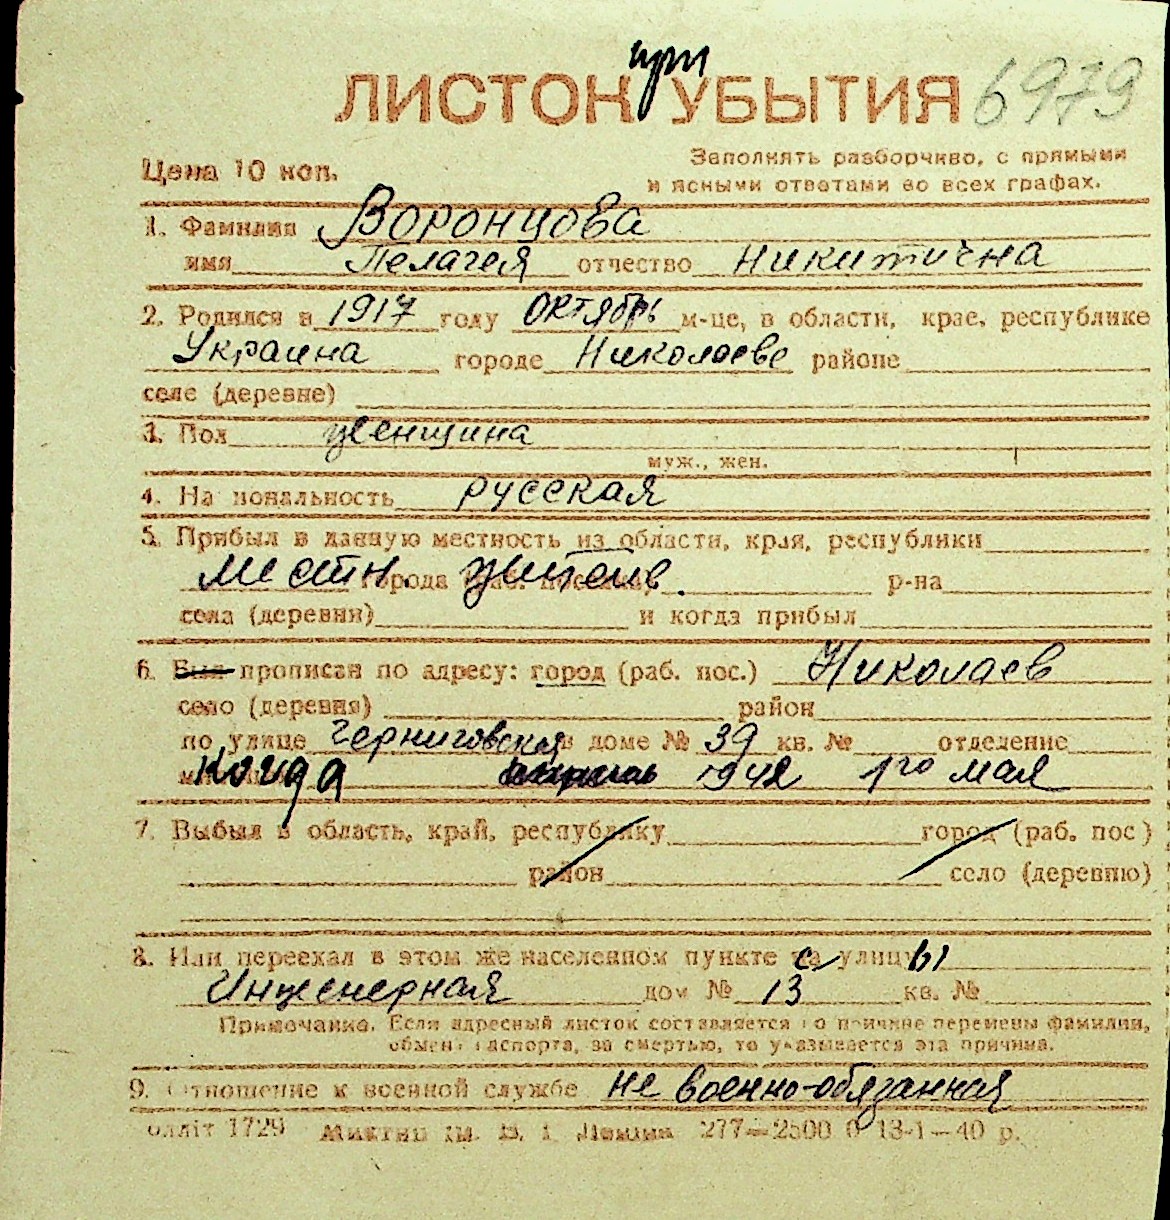 при
ЛИСТОК УБЫТИЯ 6979
Цена 10 коп.
Заполнять разборчиво, с прямыми
и ясными ответами во всех графах.
1. Фамилия Воронцова
имя Пелагея отчество Никитична
2. Родился в 1917 году октябрь м-це, в области, крае, республике
Украина городе Николаеве районе
селе (деревне)
3. Пол женщина
муж., жен.
4. На иональность русская
5. Прибыл в данную местность из области, края, республики
местн. города житель. р-на
села (деревни) и когда прибыл
6. Был прописан по адресу: город (раб. пос.) Николаев
село (деревня) район
по улице Черниговская в доме № 39 кв. № отделение
когда 1942 1го мая
7. Выбыл в область, край, республику город (раб. пос)
район село (деревню)
8. Или переехал в этом же населенном пункте с улицы
Инженерная дом № 13 кв. №
Примечание. Если адресный листок составляется по причине перемены фамилии,
обмена паспорта, за смертью, то указывается эта причина.
9. Отношение к военной службе не военно-обязанная
олліт 1729 277—2500 0 13-1—40 р.